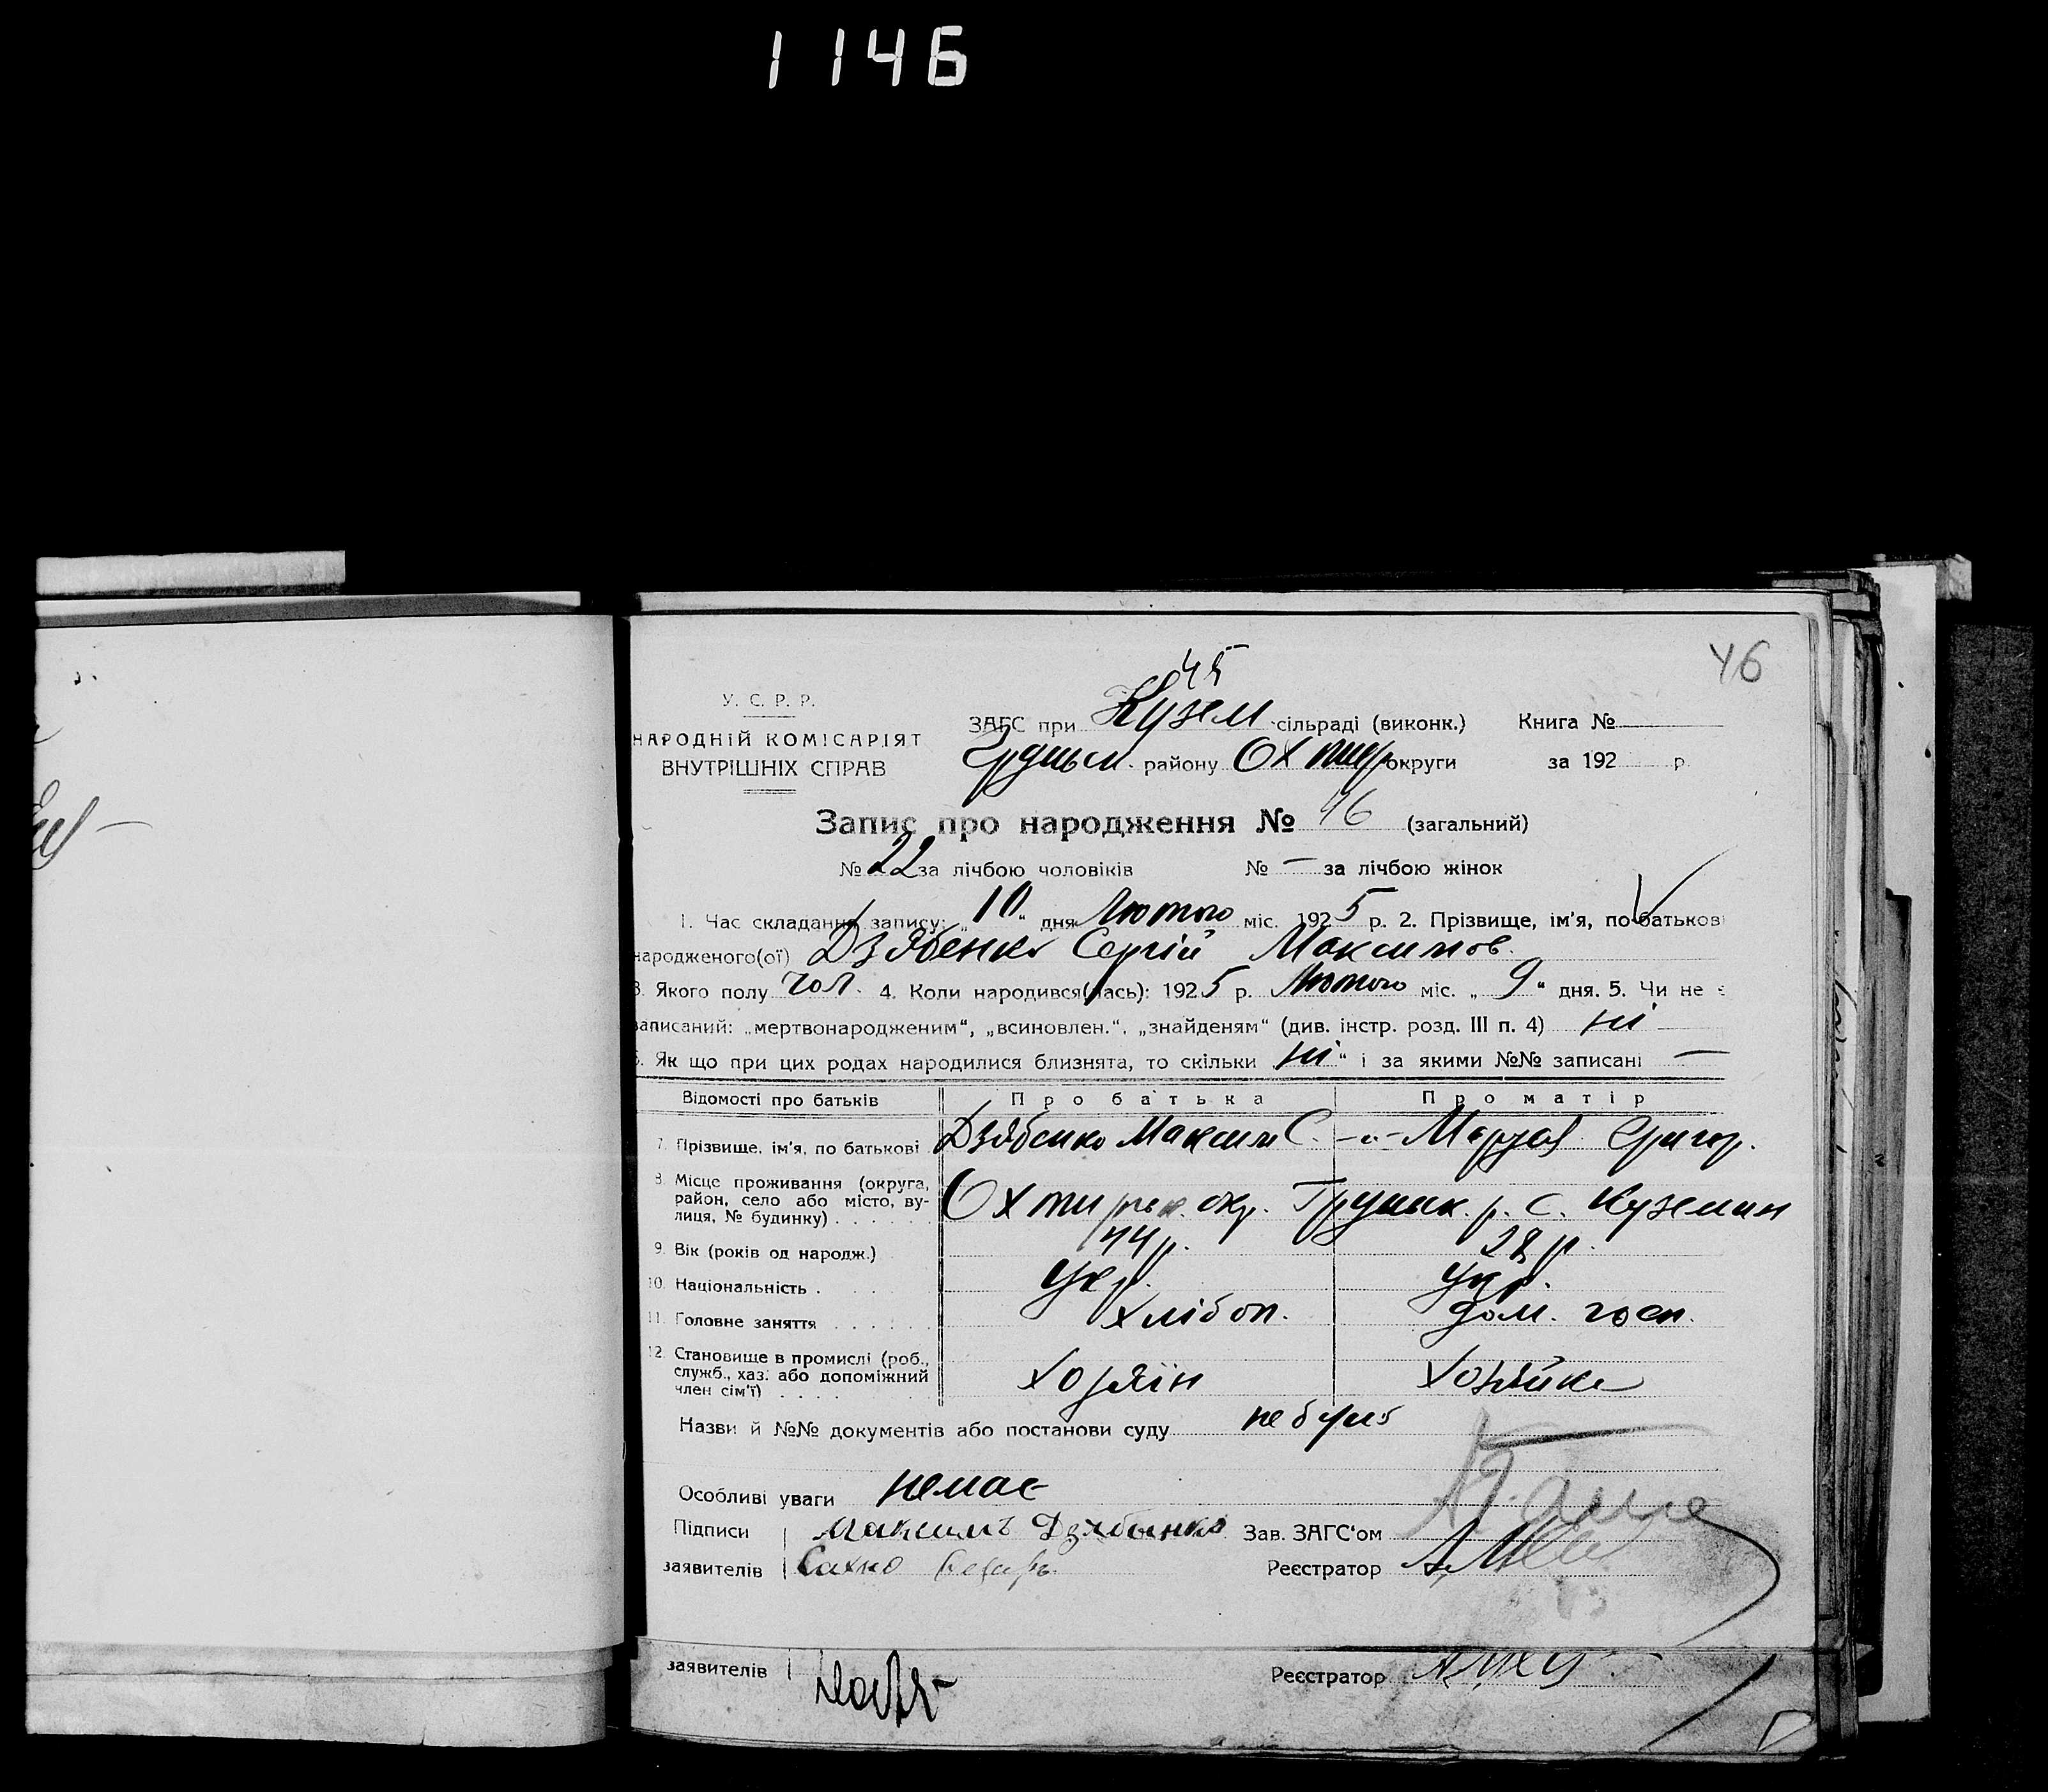 1146
46
45
У. С. Р. Р.
НАРОДНІЙ КОМІСАРІЯТ
ВНУТРІШНІХ СПРАВ
ЗАГС при Кузем сільраді (виконк.) Книга №
району Охтир округи за 192 р.
Запис про народження № 46 (загальний)
№ 22 за лічбою чоловіків № — за лічбою жінок
1. Час складання запису: „10“ дня Лютого міс. 1925 р. 2. Прізвище, ім'я, по батькові
народженого(ої) Дзябенко Сергій Максимов.
3. Якого полу чол. 4. Коли народився(лась): 1925 р. Лютого міс. „9“ дня. 5. Чи не є
записаний: „мертвонародженим“, „всиновлен.“, „знайденям“ (див. інстр. розд. III п. 4) ні
6. Як що при цих родах народилися близнята, то скільки „ні“ і за якими №№ записані —
Відомості про батьків Про батька Про матір
7. Прізвище, ім'я, по батькові Дзябенко Максим С. -"- Марія Григор.
8. Місце проживання (округа,
район, село або місто, ву-
лиця, № будинку) Охтирськ. окр. Грунськ. р. с. Куземин
9. Вік (років од народж.) 44 р. 28 р.
10. Національність Укр. Укр.
11. Головне заняття хлібоп. дом. госп.
12. Становище в промислі (роб.,
служб., хаз. або допоміжний
член сім'ї) Хозяїн Хозяйка
Назви й №№ документів або постанови суду не було
Особливі уваги немає
Підписи Максимъ Дзябенко Зав. ЗАГС'ом
заявителів Сахно Реєстратор
заявителів Реєстратор